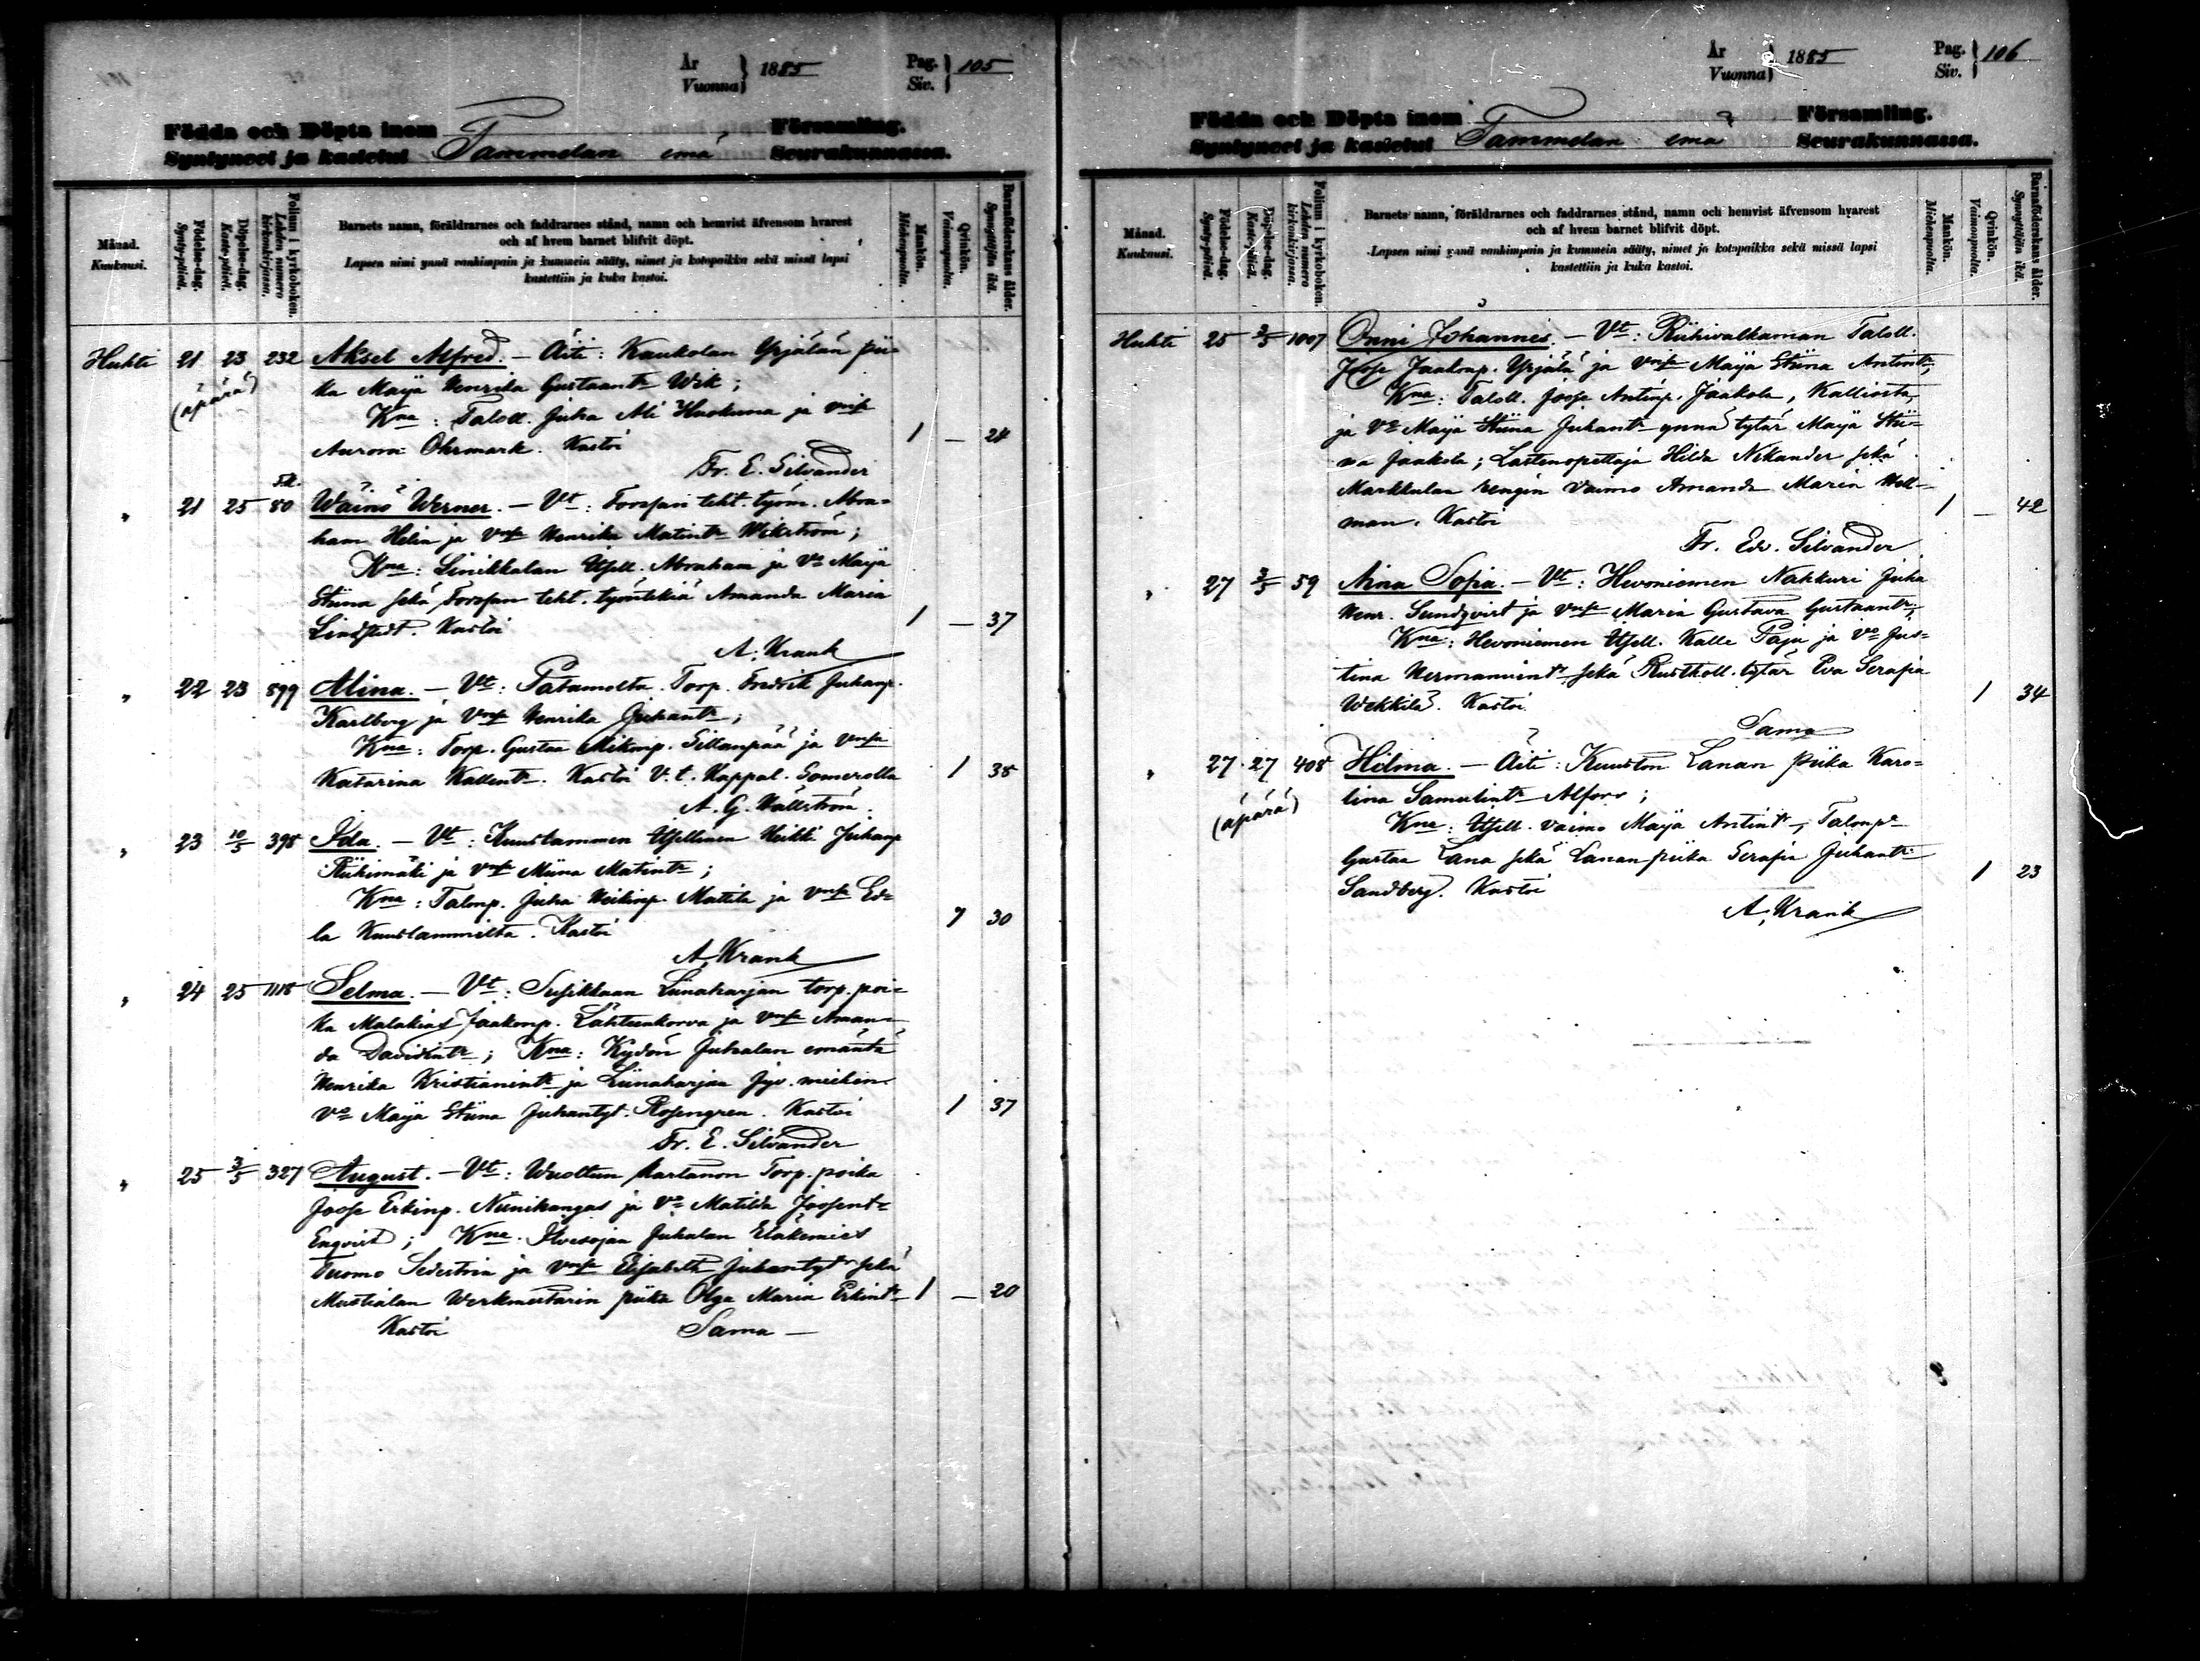 År
Vuonna } 1885
Pag.
Siv. } 105
Födda och Döpta inom Församling.
Syntyneet ja kastetut Tammelan emä Seurakunnassa.
Månad.
Kuukausi.
Födelse-dag.
Synty-päivä.
Döpelse-dag.
Kaste-päivä.
Folium i kyrkoboken.
Lehden numero kirkonkirjassa.
Barnets namn, föräldrarnes och faddrarnes stånd, namn och hemvist äfvensom hvarest
och af hvem barnet blifvit döpt.
Lapsen nimi ynnä vanhimpain ja kummein sääty, nimet ja kotopaikka sekä missä lapsi
kastettiin ja kuka kastoi.
Mankön.
Miehenpuolta.
Qvinkön.
Vaimonpuolta.
Barnaföderskans ålder.
Synnyttäjän ikä.
Huhti 21 23 232 Aksel Alfred. — Äiti: Kaukolan Yrjälän pii-
(äpärä) ka Maija Henrika Gustaantr Wik;
Kna: Taloll. Juha Ali Huokuna ja vmsa
Aurora Öhrmark. Kastoi 1 — 24
Fr. E. Silvander
" 21 25 80 Wäinö Werner. — Vt: Forssan teht. työm. Abra-
ham Helin ja Vmsa Henrika Matintr Wikström;
Kna: Linikkalan Itsell. Abraham ja Vo Maija
Stiina sekä Forssan teht. työntekiä Amanda Maria
Lindstedt. Kastoi 1 — 37
A. Krank
" 22 23 899 Alina. — Vt: Patamolta Torp. Fredrik Juhanp.
Karlberg ja Vmsa Henrika Juhantr;
Kna: Torp. Gustaa Mikonp. Sillanpää ja vmsa
Katarina Kallentr. Kastoi V. t. Kappal. Somerolla 1 38
A. G. Wällström.
" 23 10/5 398 Ida. — Vt: Kuuslammen Itsellinen Heikki Juhanp
Riihimäki ja vmsa Miina Matintr;
Kna: Talonp. Juha Heikinp. Mattila ja vmsa Ed-
la Kuuslammilta. Kastoi 1 30
A. Krank
" 24 25 1118 Selma. — Vt: Susikkaan Liinaharjan torp. poi-
ka Malakias Jaakonp. Lähteenkorva ja vmsa Aman-
da Davidintr; Kna: Kydön Juhalan emäntä
Henrika Kristianintr ja Liinaharjan jyv. miehen
Vo Maija Stiina Juhantyt. Rosengren. Kastoi 1 37
Fr. E. Silvander
" 25 3/5 327 August. — Vt: Wuoltun kartanon Torp. poika
Joose Erkinp. Niinikangas ja Vo Matilda Joosent-
Enqvist; Kna. Ilvesojan Juhalan Eläkemies
Tuomo Sederström ja vmsa Elisabeth Juhantyt sekä
Mustialan Werkmestarin piika Olga Maria Erkint- 1 — 20
Kastoi Sama —
År
Vuonna } 1885
Pag.
Siv. } 106
Födda och Döpta inom Församling.
Syntyneet ja kastetut Tammelan emä Seurakunnassa.
Månad.
Kuukausi.
Födelse-dag.
Synty-päivä.
Döpelse-dag.
Kaste-päivä.
Folium i kyrkoboken.
Lehden numero kirkonkirjassa.
Barnets namn, föräldrarnes och faddrarnes stånd, namn och hemvist äfvensom hvarest
och af hvem barnet blifvit döpt.
Lapsen nimi ynnä vanhimpain ja kummein sääty, nimet ja kotopaikka sekä missä lapsi
kastettiin ja kuka kastoi.
Mankön.
Miehenpuolta.
Qvinkön.
Vaimonpuolta.
Barnaföderskans ålder.
Synnyttäjän ikä.
Huhti 25 3/5 1007 Onni Johannes. — Vt: Riihivalkaman Taloll.
Joose Jaakonp. Yrjälä ja vmsa Maija Stiina Antintr;
Kna: Taloll. Joose Antinp. Jaakola, Kalliosta,
ja Vo Maija Stiina Juhantr ynnä tytär Maija Stii-
na Jaakola; Lastenopettaja Hilda Nikander sekä
Markkulan rengin vaimo Amanda Maria Hell-
man. Kastoi 1 — 42
Fr. Edv. Silvander
" 27 3/5 59 Aina Sofia. — Vt: Hevoniemen Nahkuri Juha
Henr. Sundqvist ja vmsa Maria Gustava Gustaantr;
Kna: Hevoniemen Itsell. Kalle Paju ja Vo Jus-
tina Hermannintr sekä Rustholl. tytär Eva Serafia
Wekkilä. Kastoi 1 34
Sama
" 27 27 408 Hilma. — Äiti: Kuuston Lanan piika Karo-
(äpärä) lina Samulintr Alfors;
Kna: Itsell. vaimo Maija Antint-, Talonp-
Gustaa Lana sekä Lanan piika Serafia Juhantr
Sandberg. Kastoi 1 23
A. Krank